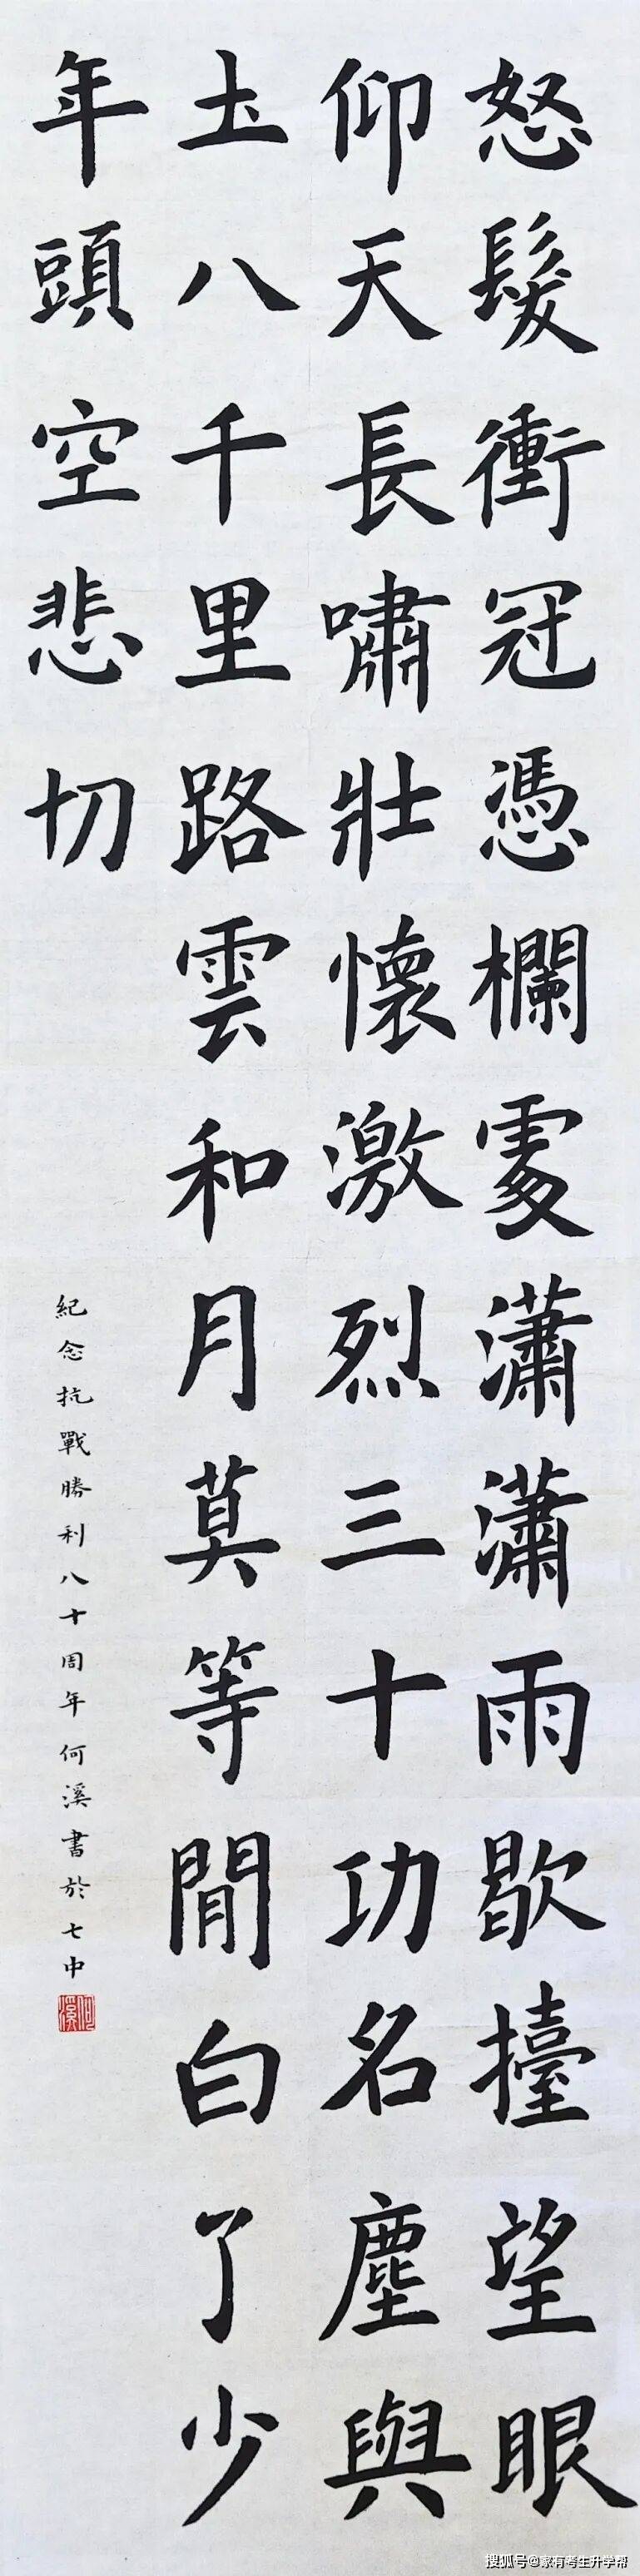 怒髮衝冠憑欄處瀟瀟雨歇擡望眼
仰天長嘯壯懷激烈三十功名塵與
土八千里路雲和月莫等閒白了少
年頭空悲切
紀念抗戰勝利八十周年何溪書於七中
何溪
搜狐号@家有考生升学帮